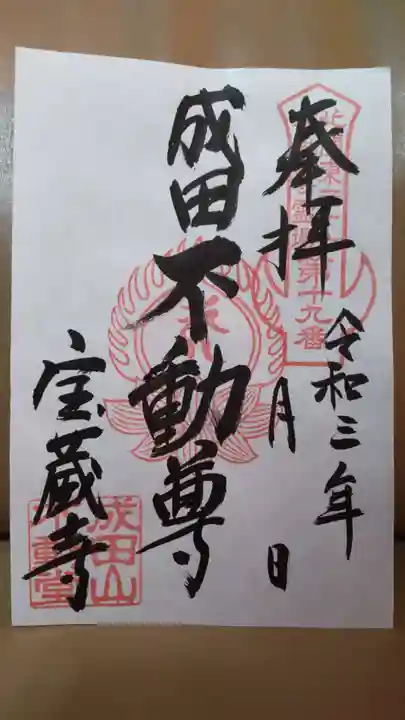 奉拝
令和三年
月 日
成田不動尊
宝蔵寺
第十九番
成田山
不動堂